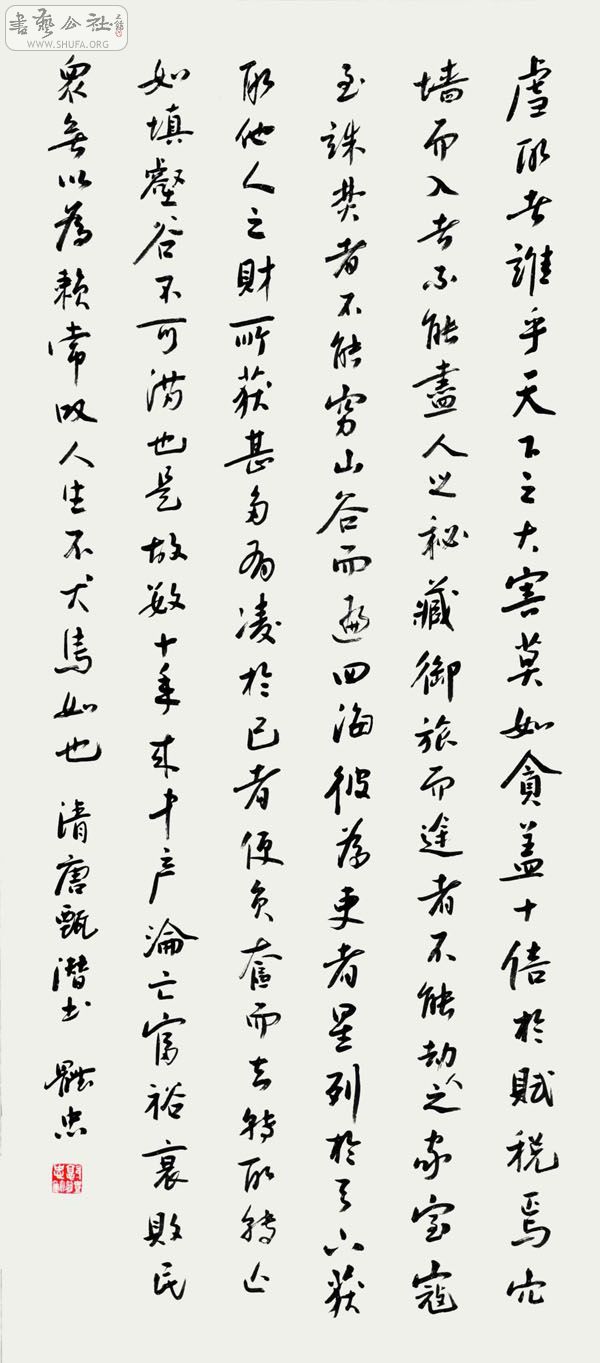 書藝公社
WWW.SHUFA.ORG
虐取者誰乎天下之大害莫如貪蓋十倍於賦税焉穴
墙而入者不能盡人之秘藏御旅而途者不能劫人之家室寇
至誅焚者不能穷山谷而遍四海彼為吏者星列於天下获
取他人之財所获甚多有凌於已者便负奮而去转取转亡
如填壑谷不可满也是故数十年来中产淪亡富裕衰敗民
衆無以為賴常叹人生不犬馬如也 清唐甄潜书 忠